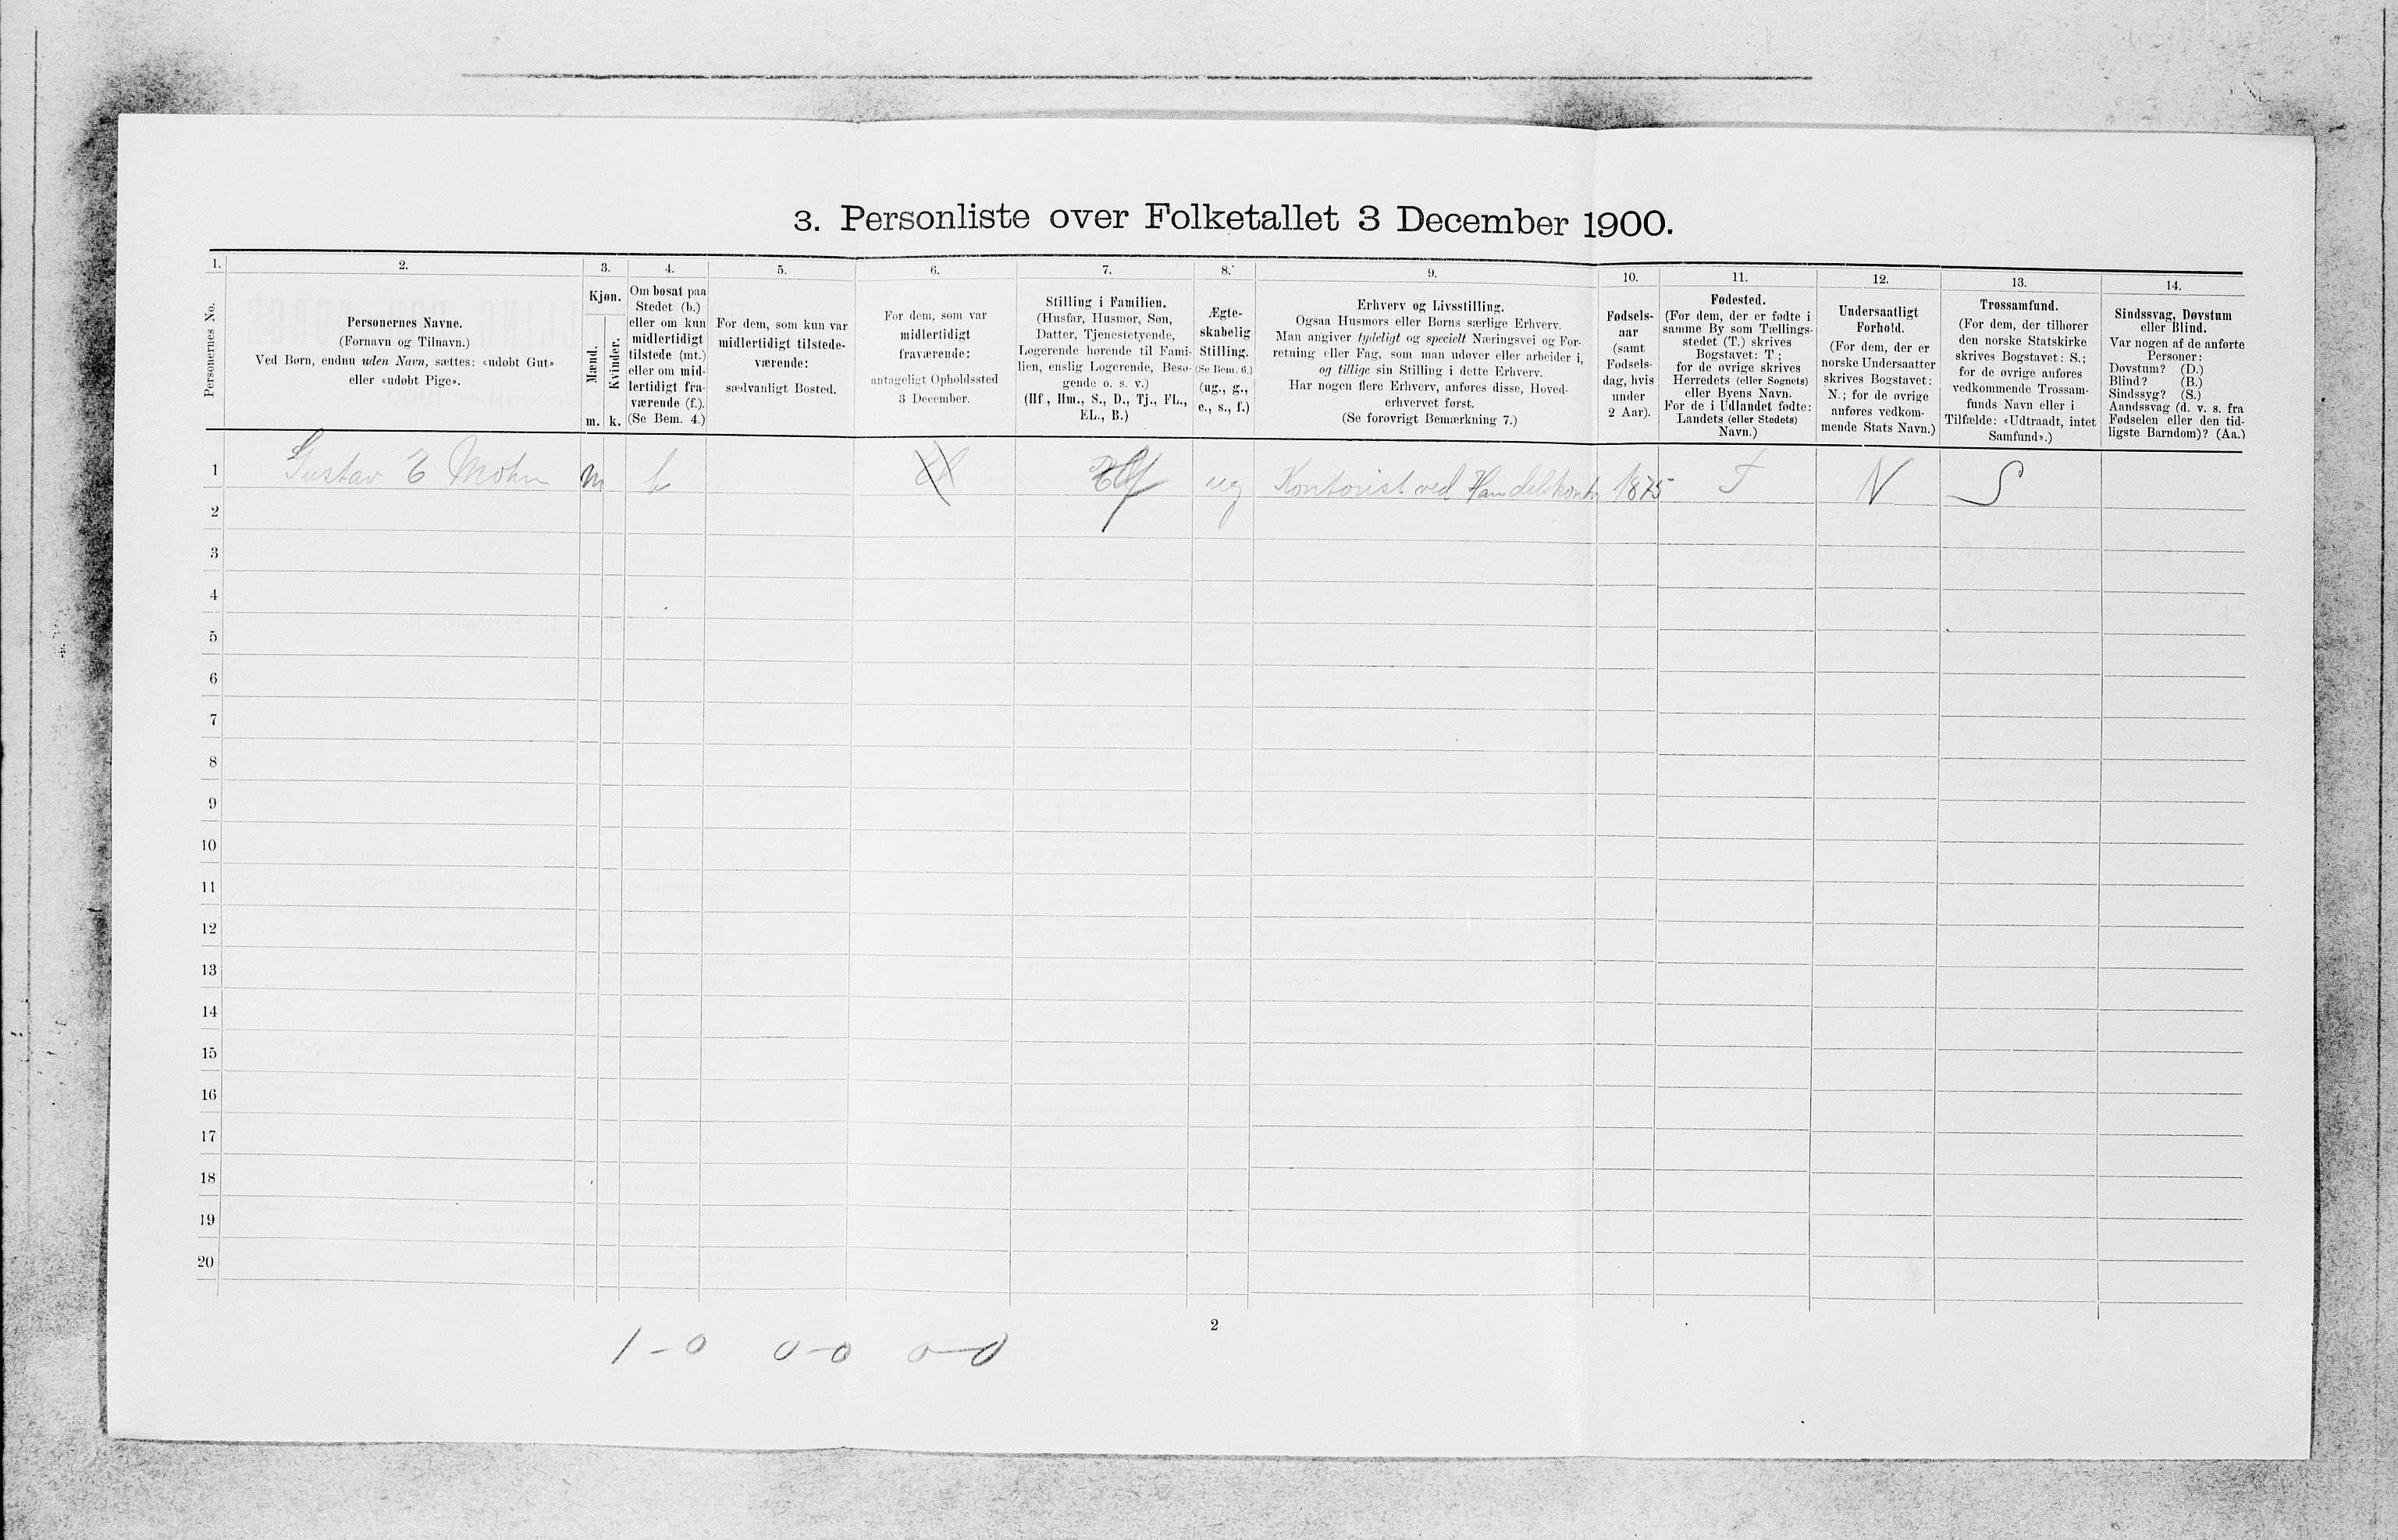 3. Personliste over Folketallet 3 December 1900.
1.
2.
3.
4.
5.
6.
7.
8.
9.
10.
11.
12.
13.
14.
Personernes No.
Personernes Navne.
(Fornavn og Tilnavn.)
Ved Børn, endnu uden Navn, sættes: «udøbt Gut»
eller «udøbt Pige».
Kjøn.
Mænd.
Kvinder.
m. k.
Om bosat paa
Stedet (b.)
eller om kun
midlertidigt
tilstede (mt.)
eller om mid-
lertidigt fra-
værende (f.).
(Se Bem. 4.)
For dem, som kun var
midlertidigt tilstede-
værende:
sædvanligt Bosted.
For dem, som var
midlertidigt
fraværende:
antageligt Opholdssted
3 December.
Stilling i Familien.
(Husfar, Husmor, Søn,
Datter, Tjenestetyende,
Logerende hørende til Fami-
lien, enslig Logerende, Besø-
gende o. s. v.)
(Hf., Hm., S., D., Tj., FL.,
EL., B.)
Ægte-
skabelig
Stilling.
(Se Bem. 6.)
(ug., g.,
e., s., f.)
Erhverv og Livsstilling.
Ogsaa Husmors eller Børns særlige Erhverv.
Man angiver tydeligt og specielt Næringsvei og For-
retning eller Fag, som man udøver eller arbeider i,
og tillige sin Stilling i dette Erhverv.
Har nogen flere Erhverv, anføres disse, Hoved-
erhvervet først.
(Se forøvrigt Bemærkning 7.)
Fødsels-
aar
(samt
Fødsels-
dag, hvis
under
2 Aar).
Fødested.
(For dem, der er fødte i
samme By som Tællings-
stedet (T.) skrives
Bogstavet: T;
for de øvrige skrives
Herredets (eller Sognets)
eller Byens Navn.
For de i Udlandet fødte:
Landets (eller Stedets)
Navn.)
Undersaatligt
Forhold.
(For dem, der er
norske Undersaatter
skrives Bogstavet:
N.; for de øvrige
anføres vedkom-
mende Stats Navn.)
Trossamfund.
(For dem, der tilhører
den norske Statskirke
skrives Bogstavet: S.;
for de øvrige anføres
vedkommende Trossam-
funds Navn eller i
Tilfælde: «Udtraadt, intet
Samfund».)
Sindssvag, Døvstum
eller Blind.
Var nogen af de anførte
Personer:
Døvstum? (D.)
Blind? (B.)
Sindssyg? (S.)
Aandssvag (d. v. s. fra
Fødselen eller den tid-
ligste Barndom)? (Aa.)
1 Gustav E Mohn m b ug Kontorist ved Handelskontr 1875 T N S
2
3
4
5
6
7
8
9
10
11
12
13
14
15
16
17
18
19
20
2
1-0 0-0 0-0